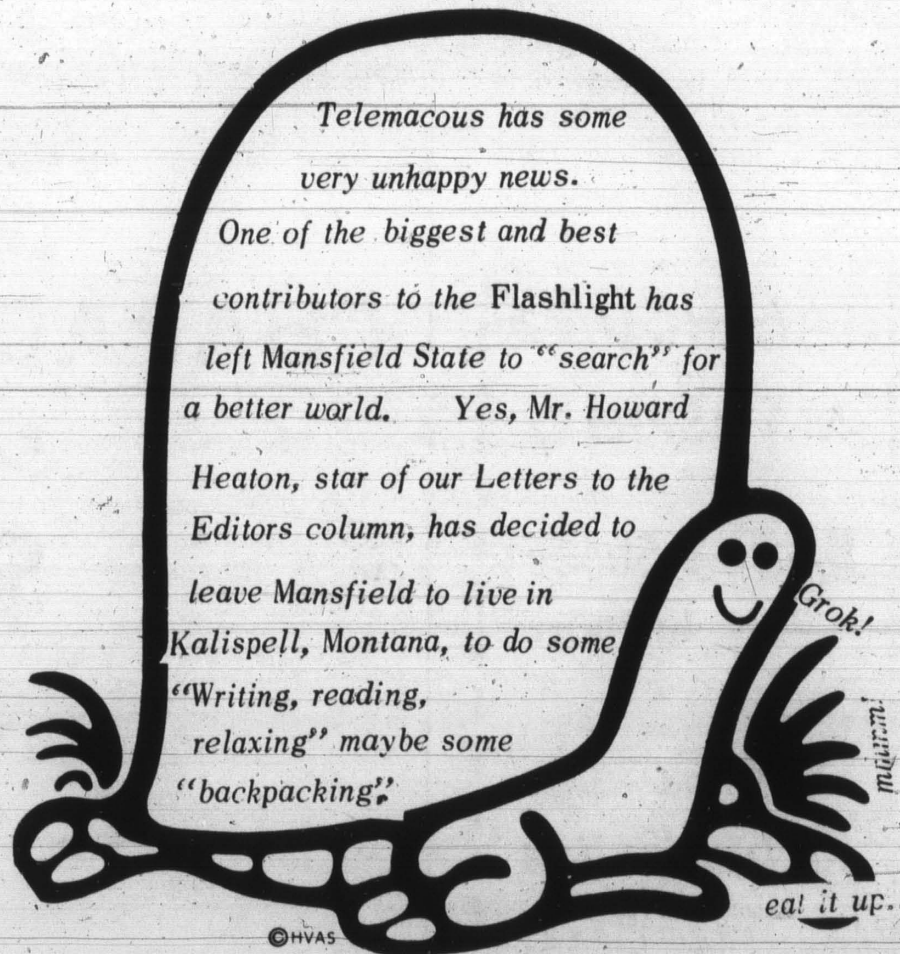 Telemacous has some
very unhappy news.
One of the biggest and best
contributors to the Flashlight has
left Mansfield State to “search” for
a better world. Yes, Mr. Howard
Heaton, star of our Letters to the
Editors column, has decided to
leave Mansfield to live in
Kalispell, Montana, to do some
“Writing, reading,
relaxing” maybe some
“backpacking”.
Grok!
eat it up.
©HVAS